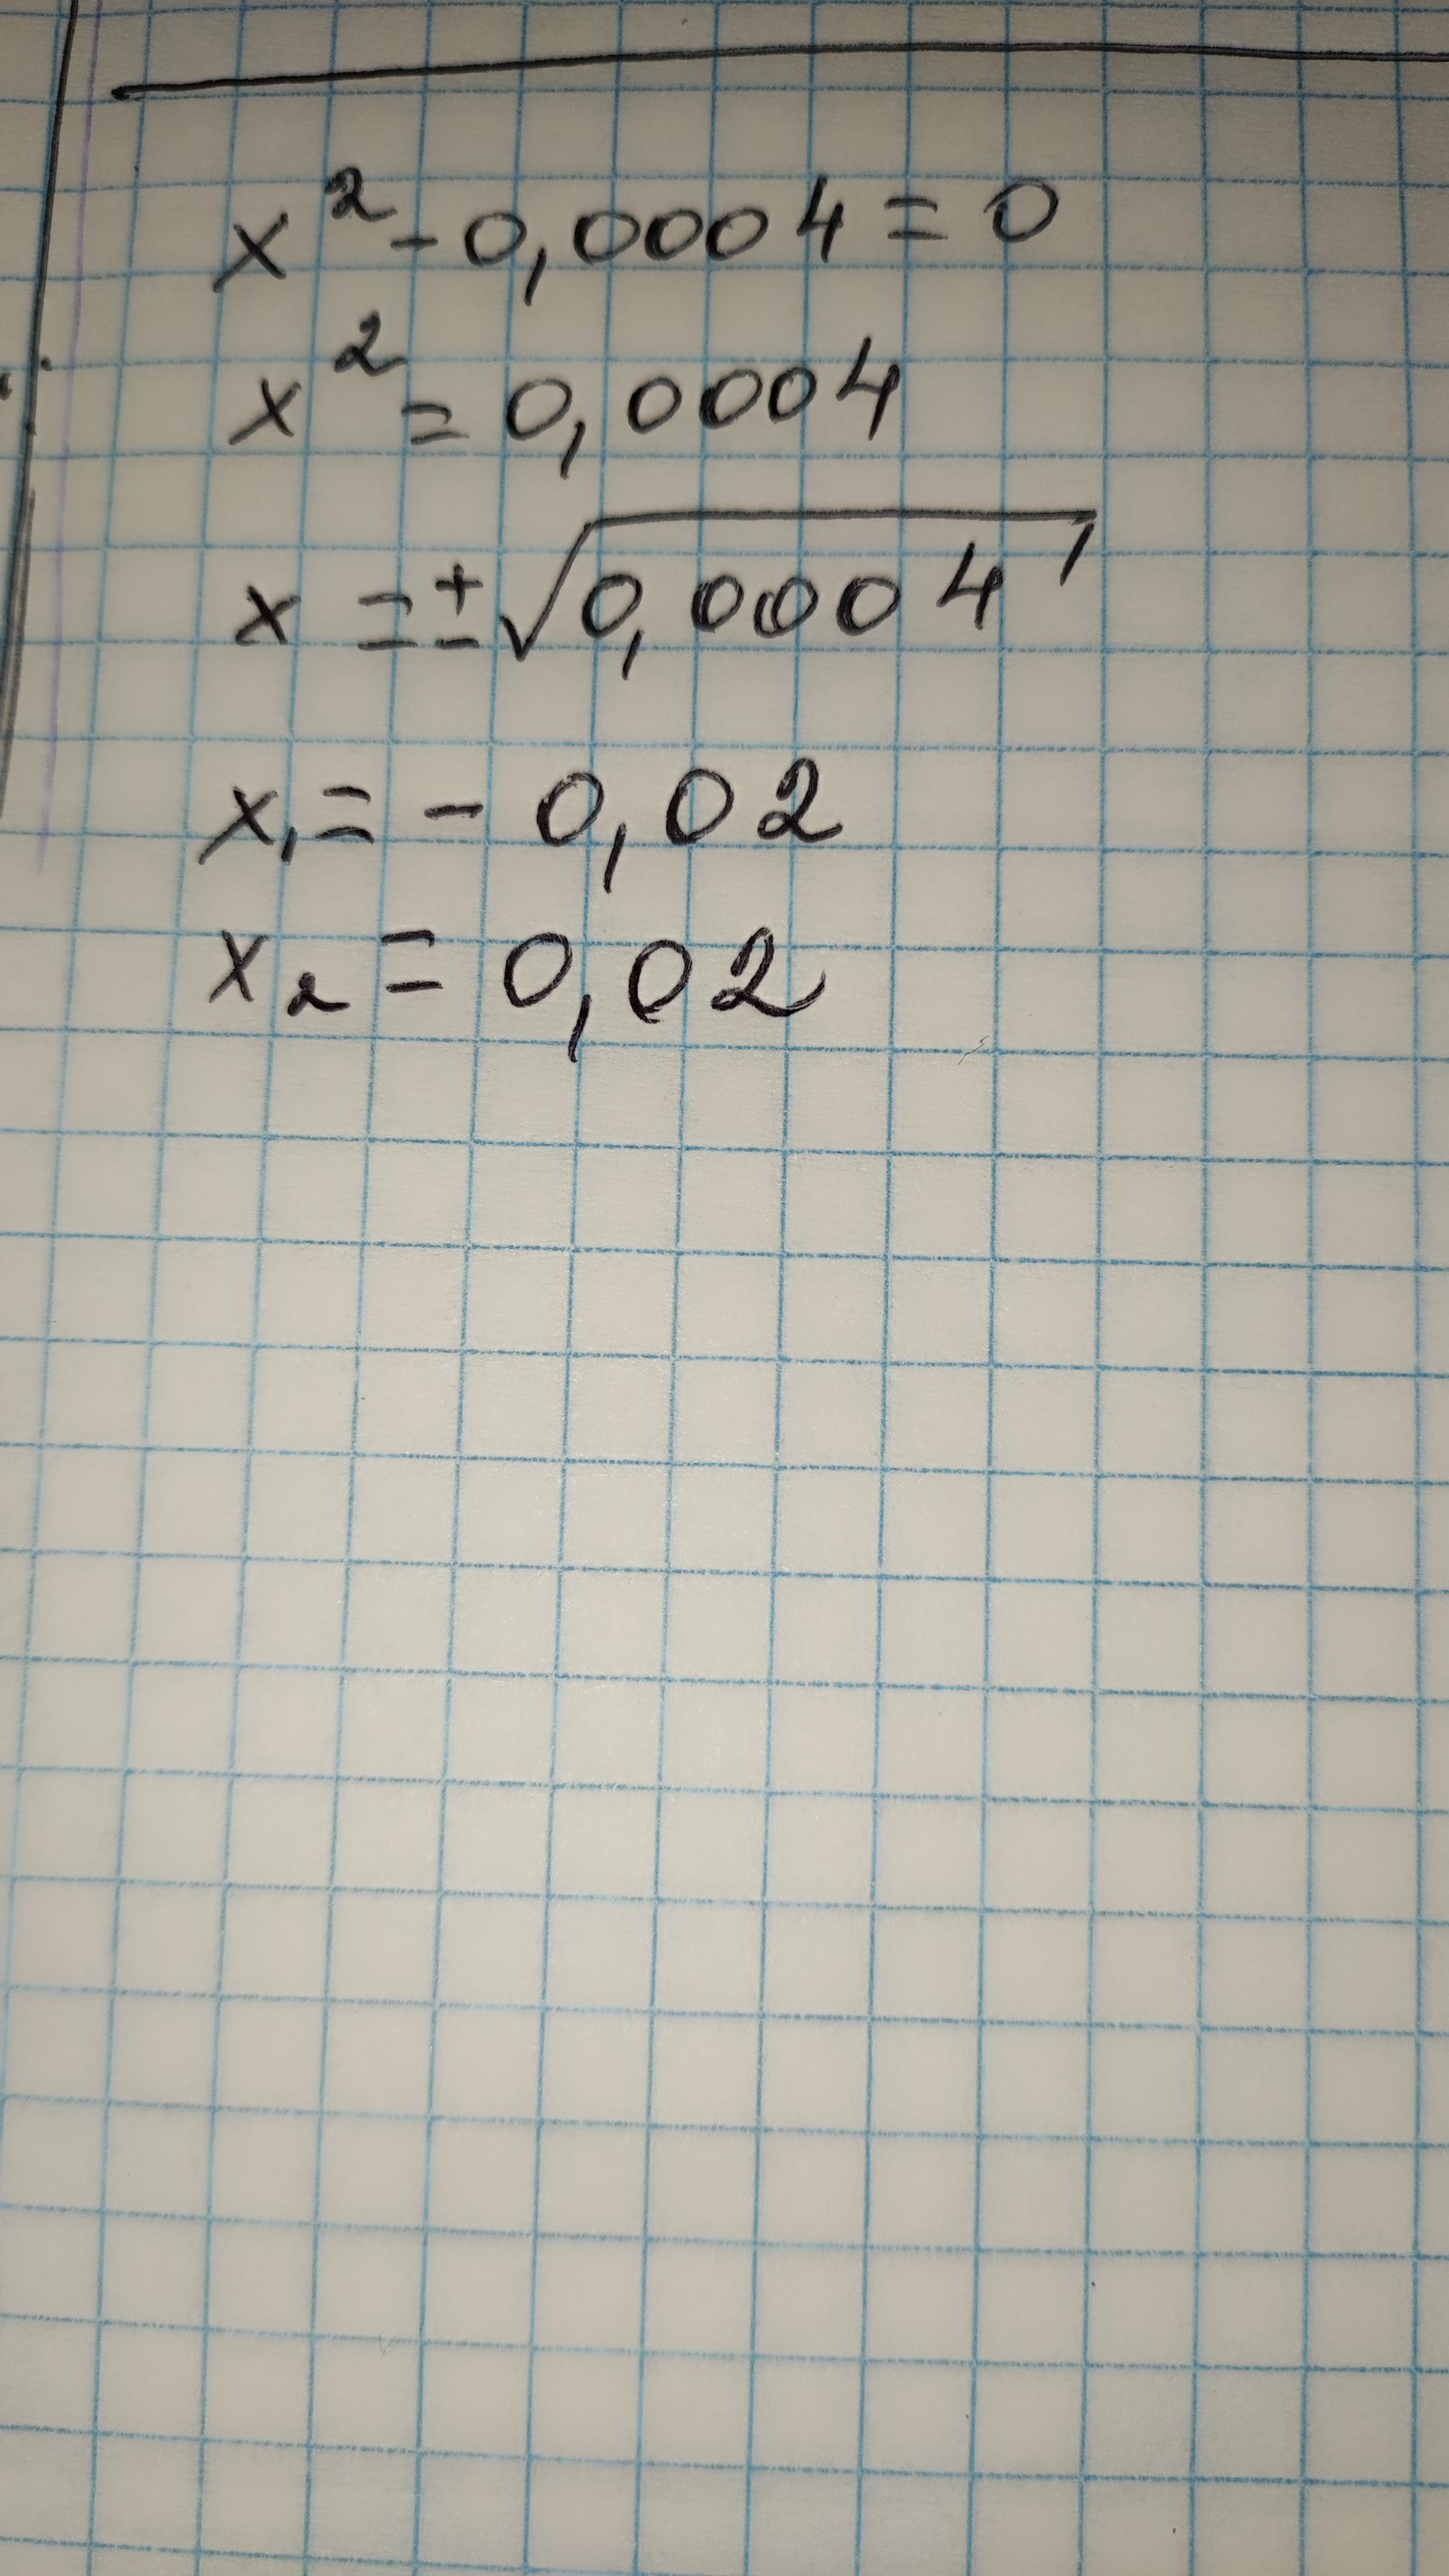 x² - 0,0004 = 0
x² = 0,0004
x = ±√0,0004
x₁ = - 0,02
x₂ = 0,02